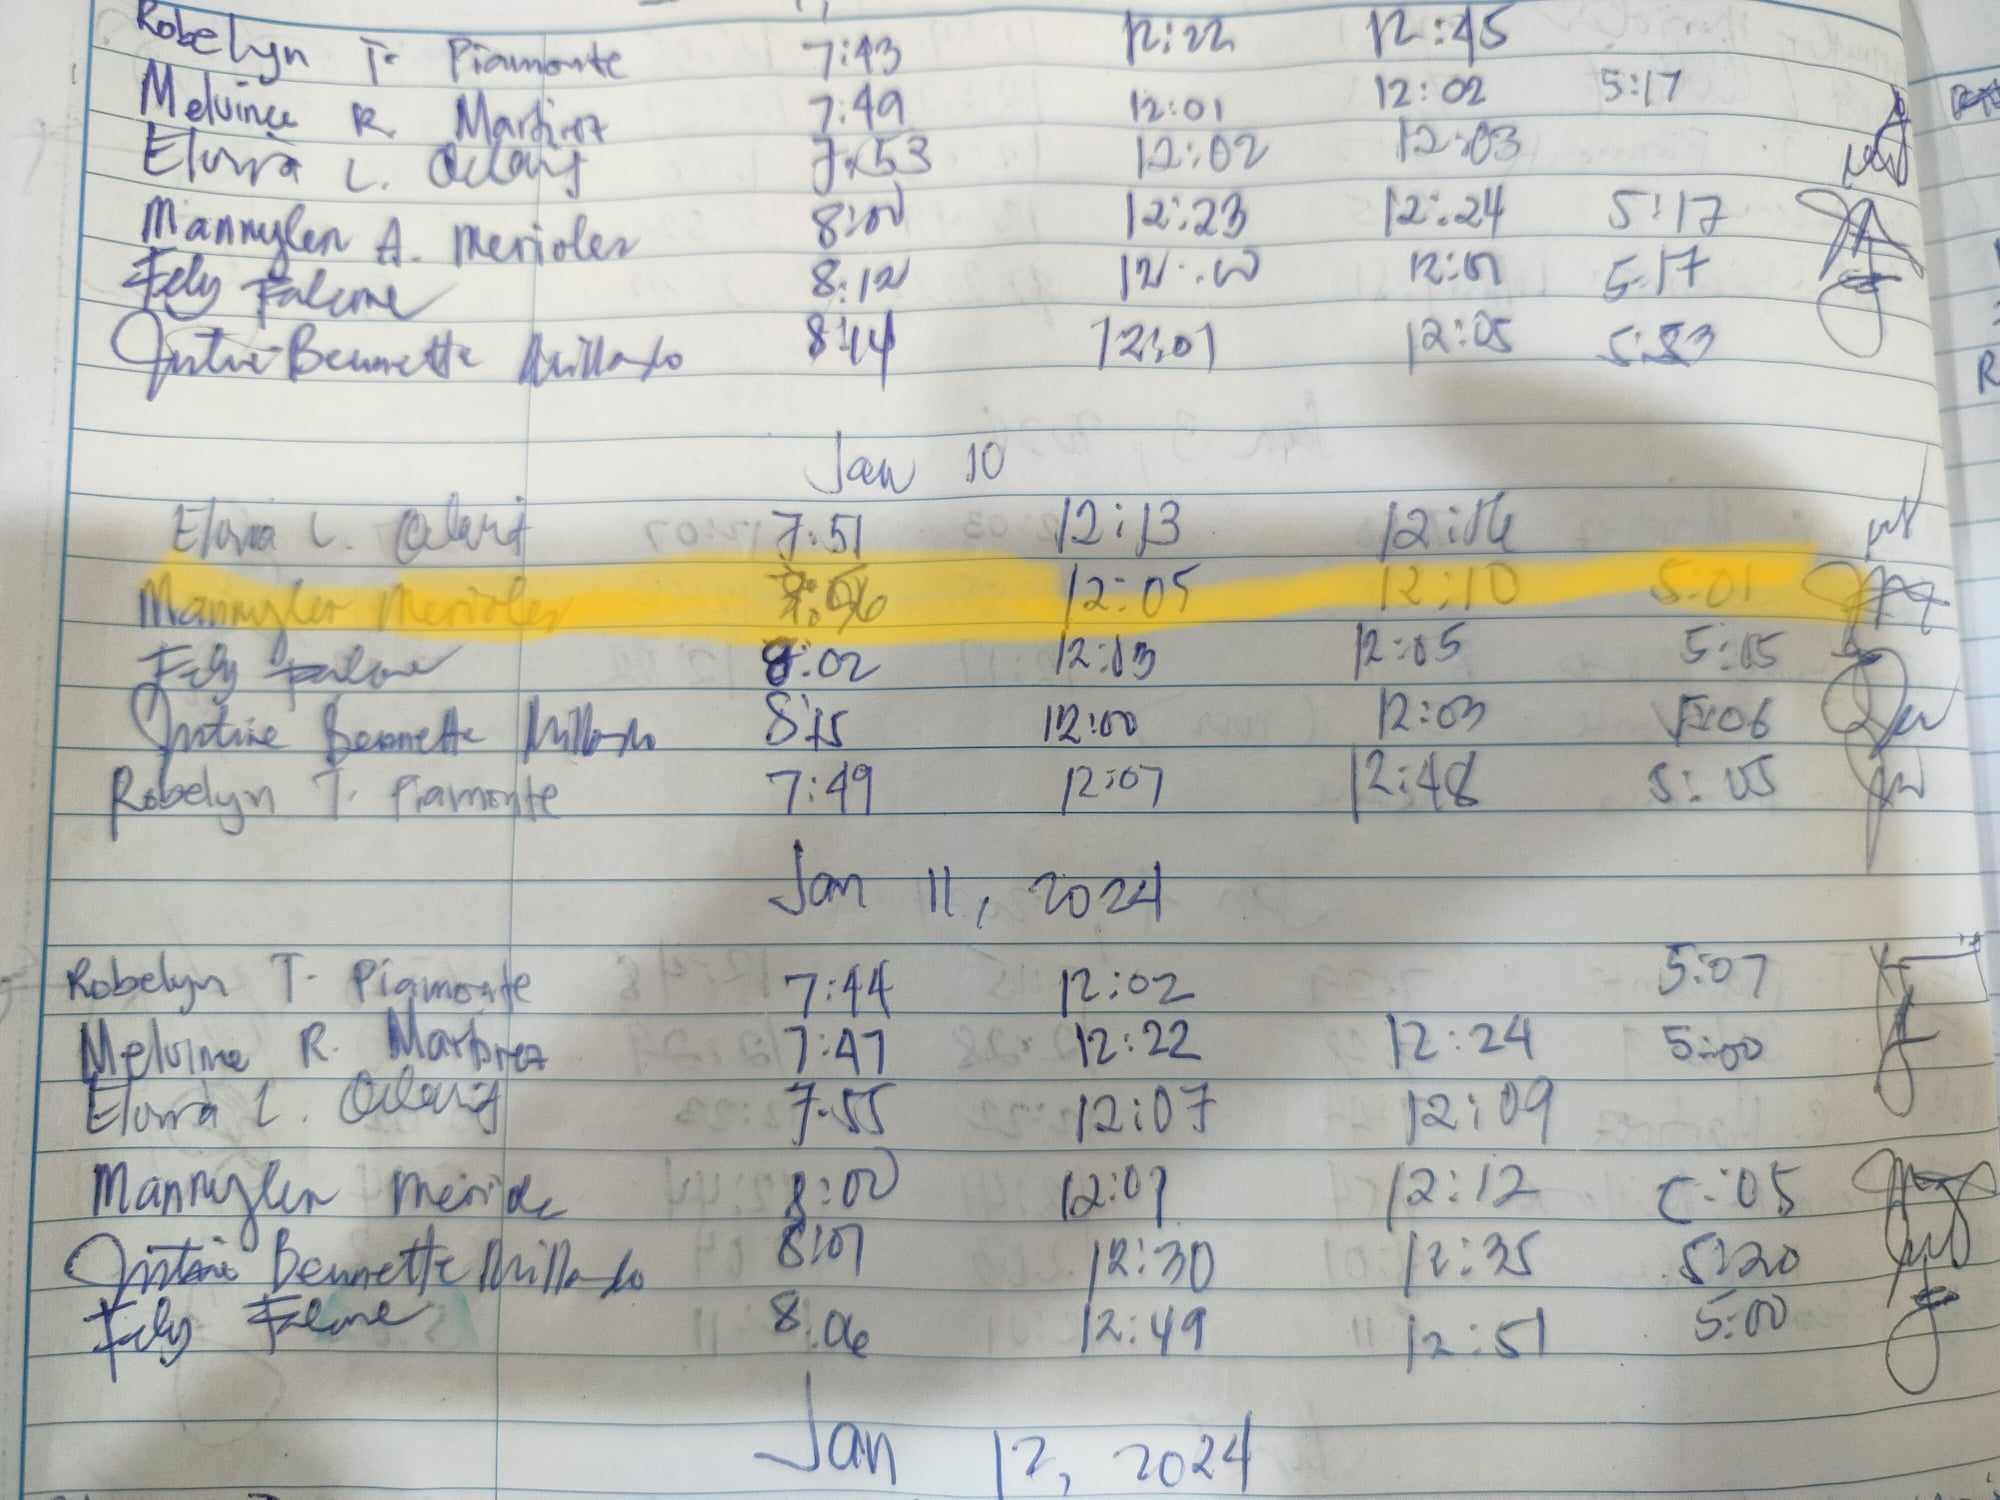 Robelyn T. Piamonte 7:43 12:22 12:45
Melvince R. Martirez 7:49 12:01 12:02 5:17
Elvira L. 7:53 12:02 12:03
Mannylen A. Merioles 8:00 12:23 12:24 5:17
Fely Falcone 8:12 12:00 12:01 5:17
Justine Bennette 8:14 12:01 12:05
Jan 10
Elvira L. 7:51 12:13 12:14
Mannylen Merioles 12:05 12:10 5:01
Fely Falcone 8:02 12:03 12:05 5:05
Justine Bennette 8:15 12:00 12:03 5:06
Robelyn T. Piamonte 7:49 12:07 12:48 5:05
Jan 11, 2024
Robelyn T. Piamonte 7:44 12:02 5:07
Melvince R. Martirez 7:47 12:22 12:24 5:00
Elvira L. 7:55 12:07 12:09
Mannylen 8:00 12:07 12:12 5:05
Justine Bennette 8:01 12:30 12:35 5:20
Fely Falcone 8:06 12:49 12:51 5:00
Jan 12, 2024